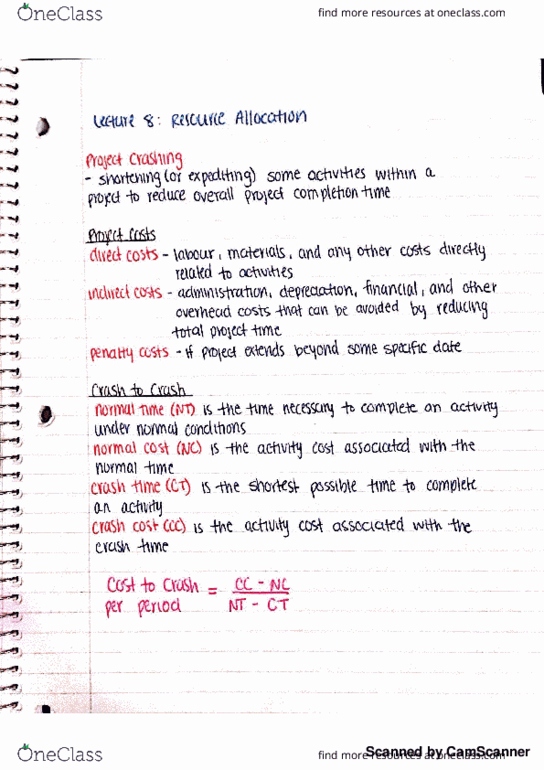 OneClass
find more resources at oneclass.com
Lecture 8: Resource Allocation
Project Crashing
- shortening (or expediting) some activities within a
project to reduce overall project completion time
Project Costs
direct costs - labour, materials, and any other costs directly
related to activities
indirect costs - administration, depreciation, financial, and other
overhead costs that can be avoided by reducing
total project time
penalty costs - if project extends beyond some specific date
Crash to Crash
normal time (NT) is the time necessary to complete an activity
under normal conditions
normal cost (NC) is the activity cost associated with the
normal time
crash time (CT) is the shortest possible time to complete
an activity
crash cost (CC) is the activity cost associated with the
crash time
Cost to Crash = CC - NC
per period NT - CT
OneClass
find more resources at oneclass.com
Scanned by CamScanner